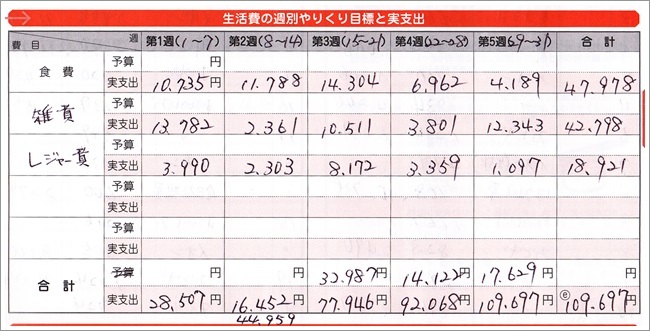 生活費の週別やりくり目標と実支出
費目 週 第1週(1~7) 第2週(8~14) 第3週(15~21) 第4週(22~28) 第5週(29~31) 合計
食費 予算 円
実支出 10.735円 11.788 14.304 6.962 4.189 47.978
雑費 予算
実支出 13.782 2.361 10.511 3.801 12.343 42.798
レジャー費 予算
実支出 3.990 2.303 8.172 3.359 1.097 18.921
予算
実支出
予算
実支出
合計 予算 円 円 32.987円 14.122円 17.629円 円
実支出 28.507円 16.452円 77.946円 92.068円 109.697円 ⓔ109.697円
44.959